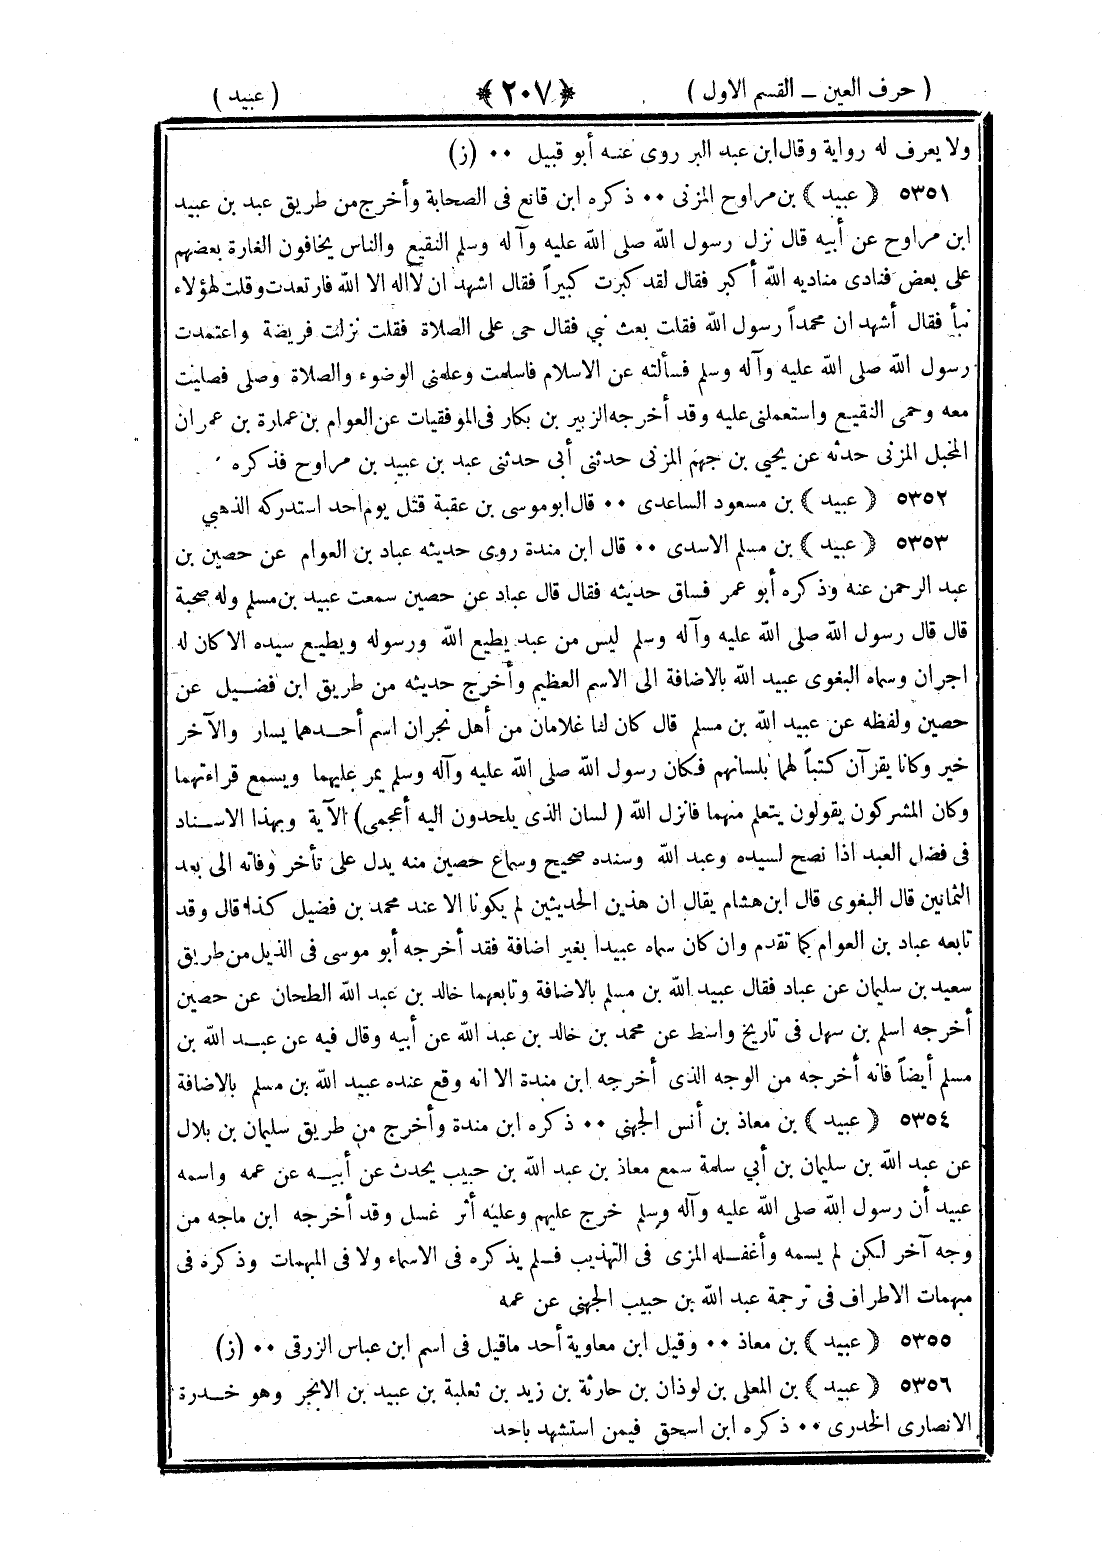 ( حرف العين ــ القسم الاول ) ﴿ ٢٠٧ ﴾ ( عبيد )
ولا يعرف له رواية وقال ابن عبد البر روى عنه أبو قبيل ٠٠ (ز)
٥٣٥١ ﴿ عبيد ﴾ بن مراوح المزنى ٠٠ ذكره ابن قانع فى الصحابة وأخرج من طريق عبد بن عبيد
ابن مراوح عن أبيه قال نزل رسول الله صلى الله عليه وآله وسلم النقيع والناس يخافون الغارة بعضهم
على بعض فنادى مناديه الله أكبر فقال لقد كبرت كبيراً فقال اشهد ان لااله الا الله فارتعدت وقلت لهؤلاء
نبأ فقال أشهد ان محمداً رسول الله فقلت بعث نبي فقال حى على الصلاة فقلت نزلت فريضة واعتمدت
رسول الله صلى الله عليه وآله وسلم فسألته عن الاسلام فاسلمت وعلمنى الوضوء والصلاة وصلى فصليت
معه وحمى النقيع واستعملنى عليه وقد أخرجه الزبير بن بكار فى الموفقيات عن العوام بن عمارة بن عمران
المخبل المزنى حدثه عن يحيى بن جهم المزنى حدثنى أبى حدثنى عبد بن عبيد بن مراوح فذكره
٥٣٥٢ ﴿ عبيد ﴾ بن مسعود الساعدى ٠٠ قال ابو موسى بن عقبة قتل يوم احد استدركه الذهبي
٥٣٥٣ ﴿ عبيد ﴾ بن مسلم الاسدى ٠٠ قال ابن مندة روى حديثه عباد بن العوام عن حصين بن
عبد الرحمن عنه وذكره أبو عمر فساق حديثه فقال قال عباد عن حصين سمعت عبيد بن مسلم وله صحبة
قال قال رسول الله صلى الله عليه وآله وسلم ليس من عبد يطيع الله ورسوله ويطيع سيده الا كان له
اجران وسماه البغوى عبيد الله بالاضافة الى الاسم العظيم وأخرج حديثه من طريق ابن فضيل عن
حصين ولفظه عن عبيد الله بن مسلم قال كان لنا غلامان من أهل نجران اسم أحدهما يسار والآخر
خير وكانا يقرآن كتباً لهما بلسانهم فكان رسول الله صلى الله عليه وآله وسلم يمر عليهما ويسمع قراءتهما
وكان المشركون يقولون يتعلم منهما فانزل الله ( لسان الذى يلحدون اليه أعجمى ) الآية وبهذا الاسناد
فى فضل العبد اذا نصح لسيده وعبد الله وسنده صحيح وسماع حصين منه يدل على تأخر وفاته الى بعد
الثمانين قال البغوى قال ابن هشام يقال ان هذين الحديثين لم يكونا الا عند محمد بن فضيل كذا قال وقد
تابعه عباد بن العوام كما تقدم وان كان سماه عبيدا بغير اضافة فقد أخرجه أبو موسى فى الذيل من طريق
سعيد بن سليمان عن عباد فقال عبيد الله بن مسلم بالاضافة وتابعهما خالد بن عبد الله الطحان عن حصين
أخرجه اسلم بن سهل فى تاريخ واسط عن محمد بن خالد بن عبد الله عن أبيه وقال فيه عن عبد الله بن
مسلم أيضاً فانه أخرجه من الوجه الذى أخرجه ابن مندة الا انه وقع عنده عبيد الله بن مسلم بالاضافة
٥٣٥٤ ﴿ عبيد ﴾ بن معاذ بن أنس الجهنى ٠٠ ذكره ابن مندة وأخرج من طريق سليمان بن بلال
عن عبد الله بن سليمان بن أبي سلمة سمع معاذ بن عبد الله بن حبيب يحدث عن أبيه عن عمه واسمه
عبيد أن رسول الله صلى الله عليه وآله وسلم خرج عليهم وعليه أثر غسل وقد أخرجه ابن ماجه من
وجه آخر لكن لم يسمه وأغفله المزى فى التهذيب فلم يذكره فى الاسماء ولا فى المبهمات وذكره فى
مبهمات الاطراف فى ترجمة عبد الله بن حبيب الجهنى عن عمه
٥٣٥٥ ﴿ عبيد ﴾ بن معاذ ٠٠ وقيل ابن معاوية أحد ماقيل فى اسم ابن عباس الزرقى ٠٠ (ز)
٥٣٥٦ ﴿ عبيد ﴾ بن المعلى بن لوذان بن حارثة بن زيد بن ثعلبة بن عبيد بن الابجر وهو خدرة
الانصارى الخدرى ٠٠ ذكره ابن اسحق فيمن استشهد باحد